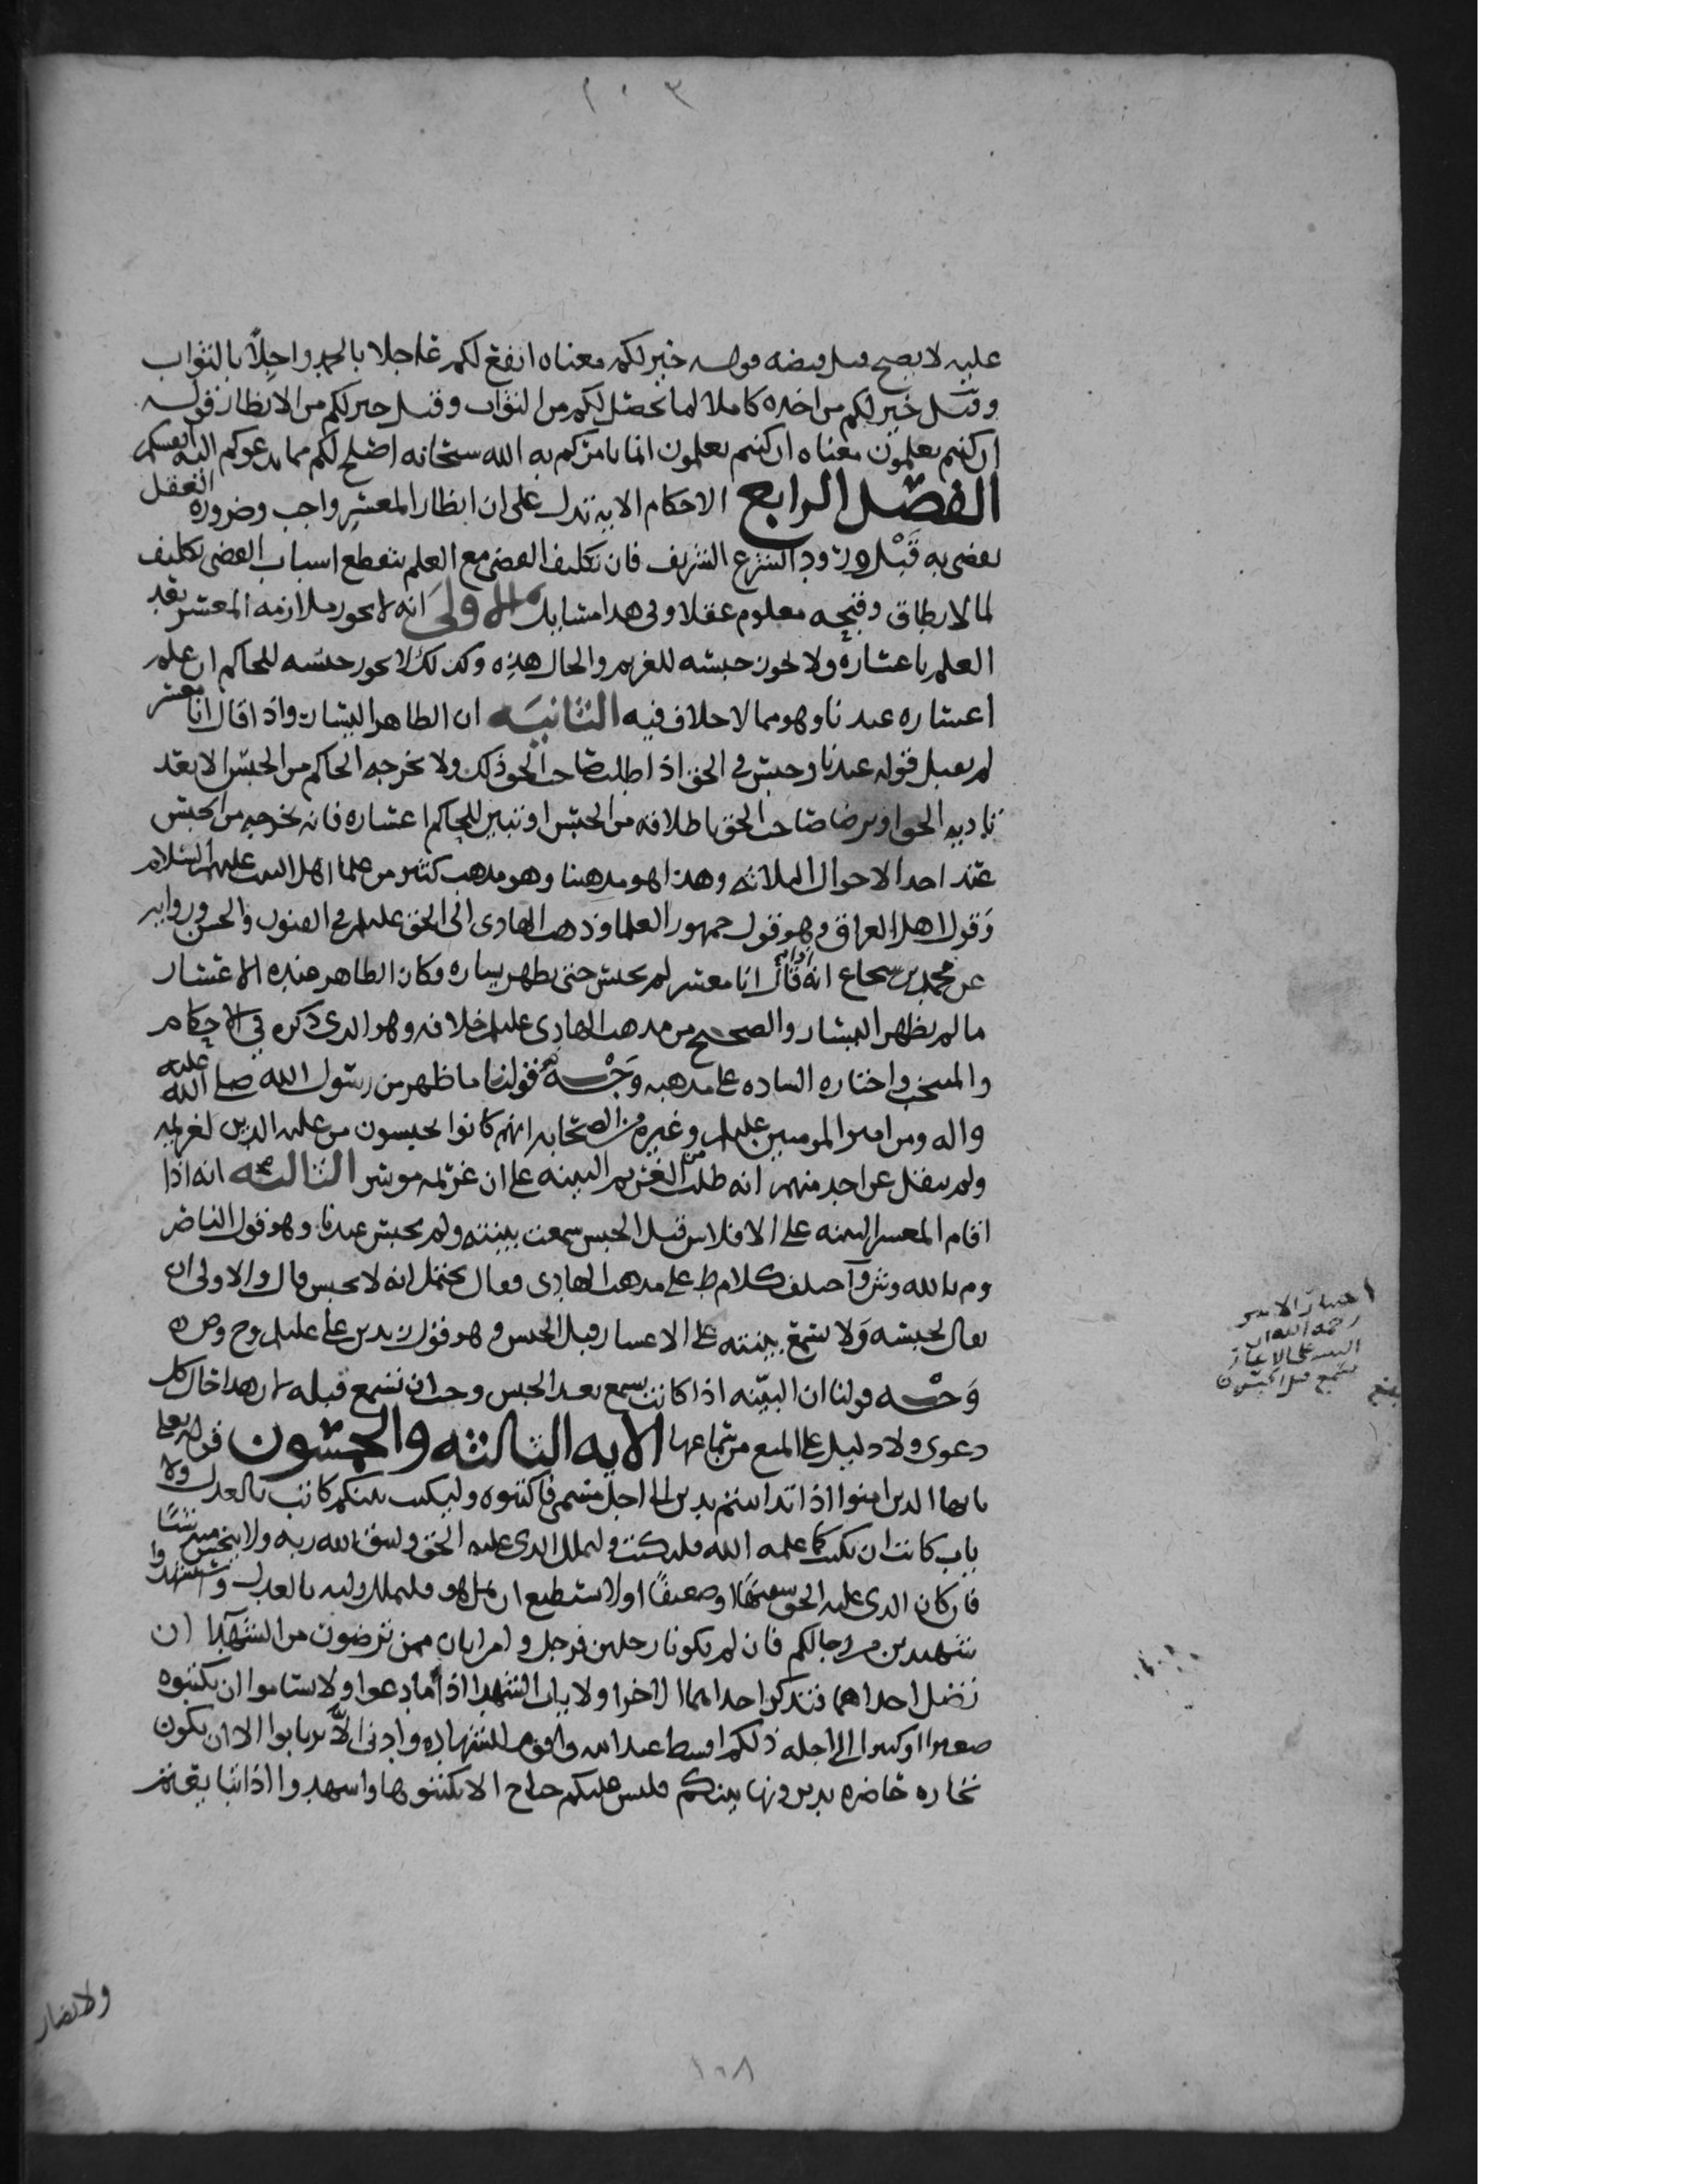 ١٠٣
عليه لا يصح قبل قبضه قوله خير لكم معناه انفع لكم عاجلا بالحمد واجلا بالثواب
وقيل خير لكم من اخذه كاملا لما يحصل لكم من الثواب وقيل خير لكم من الانظار قوله
ان كنتم تعلمون معناه ان كنتم تعلمون ان ما يامركم به الله سبحانه اصلح لكم مما تدعوكم اليه انفسكم
الفصل الرابع الاحكام الايه تدل على ان انظار المعسر واجب وضروره العقل
تقضي به قبل ورود الشرع الشريف فان تكليف القضى مع العلم بتقطع اسباب القضى تكليف
لما لا يطاق وقبحه معلوم عقلا وفي هذا مسايل الاولى انه لا يجوز ملازمه المعسر بعد
العلم باعساره ولا يجوز حبسه للغريم والحال هذه وكذلك لا يجوز حبسه للحاكم ان علم
اعساره عندنا وهو مما لا خلاف فيه الثانيه ان الظاهر اليسار واذا قال انا معسر
لم يقبل قوله عندنا وحبس في الحق اذا طلب صاحب الحق ذلك ولا يخرجه الحاكم من الحبس الا بعد
تاديه الحق او يرضا صاحب الحق باطلاقه من الحبس او تبين للحاكم اعساره فانه يخرجه من الحبس
عند احد الاحوال الثلاثه وهذا هو مذهبنا وهو مذهب كثير من علما اهل البيت عليهم السلام
وقول اهل العراق وهو قول جمهور العلما وذهب الهادي الى الحق عليلم في الفنون والحسن وروايه
عن محمد بن شجاع انه اذا قال انا معسر لم يحبس حتى يظهر يساره وكان الظاهر عنده الاعسار
ما لم يظهر اليسار والصحيح من مذهب الهادي عليلم خلافه وهو الذي ذكره في الاحكام
والمنتخب واختاره الساده على مذهبه وجه قولنا ما ظهر من رسول الله صلى الله عليه
واله ومن امير المومنين عليلم وغيره من الصحابه انهم كانوا يحبسون من عليه الدين لغريمه
ولم ينقل عن احد منهم انه طلب من الغريم البينه على ان غريمه موسر الثالثه انه اذا
اقام المعسر البينه على الافلاس قبل الحبس سمعت بينته ولم يحبس عندنا وهو قول الناصر
وم بالله وش واختلف كلام ط على مذهب الهادي فقال يحتمل انه لا يحبس قال والاولى ان
يقال يحبسه ولا يسمع بينته على الاعسار قبل الحبس وهو قول زيد بن علي عليلم وح وص
وجه قولنا ان البينه اذا كانت تسمع بعد الحبس وجب ان تسمع قبله لان هذا حال كل
دعوى ولا دليل على المنع من سماعها الايه الثالثه والخمسون قوله تعالى
يايها الذين امنوا اذا تداينتم بدين الى اجل مسمى فاكتبوه وليكتب بينكم كاتب بالعدل ولا
ياب كاتب ان يكتب كما علمه الله فليكتب وليملل الذي عليه الحق وليتق الله ربه ولا يبخس منه شيئا
فان كان الذي عليه الحق سفيها او ضعيفا او لا يستطيع ان يمل هو فليملل وليه بالعدل واستشهدوا
شهيدين من رجالكم فان لم يكونا رجلين فرجل وامراتان ممن ترضون من الشهدا ان
تضل احداهما فتذكر احداهما الاخرا ولا ياب الشهدا اذا ما دعوا ولا تساموا ان تكتبوه
صغيرا او كبيرا الى اجله ذلكم اقسط عند الله واقوم للشهاده وادنى الا ترتابوا الا ان تكون
تجاره حاضره تديرونها بينكم فليس عليكم جناح الا تكتبوها واشهدوا اذا تبايعتم
اختار الامير
رحمه الله ان
البينه على الاعسار
تسمع قبل الحبس
ولا يضار
١٠٨